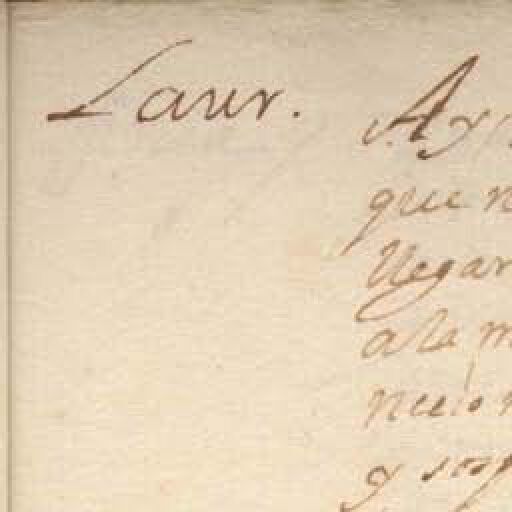 Laur.
Ay
que n
llegar
a la m
necio
y sosp